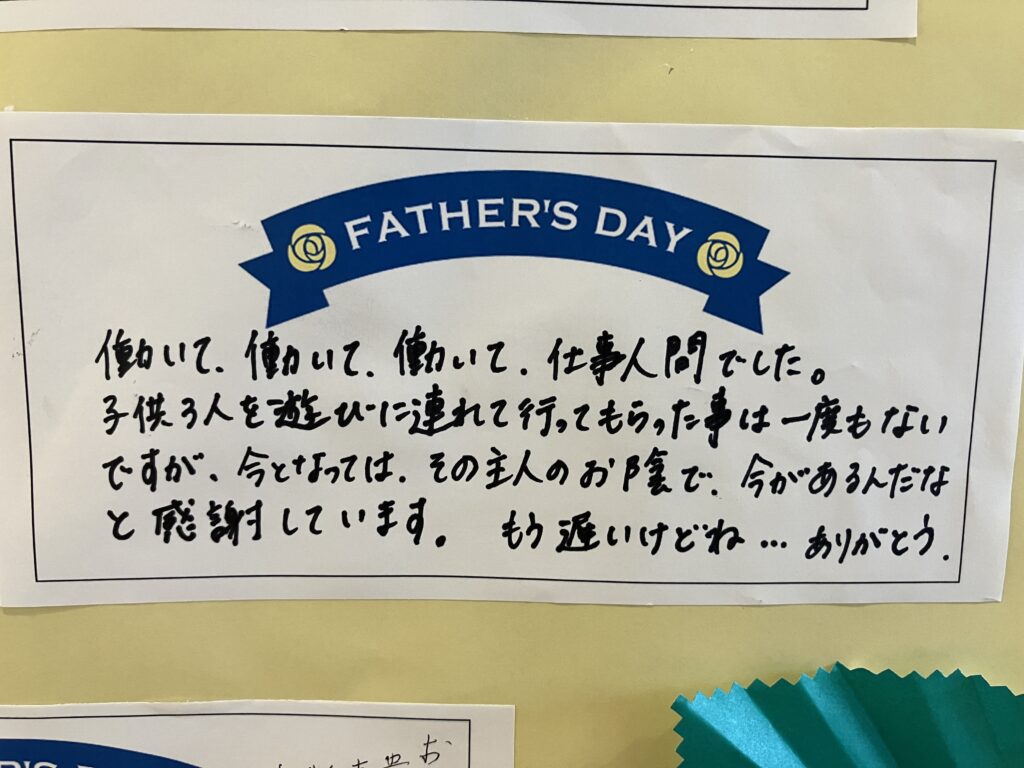 FATHER'S DAY
働いて、働いて、働いて、仕事人間でした。
子供3人を遊びに連れて行ってもらった事は一度もない
ですが、今となっては、その主人のお陰で、今があるんだな
と感謝しています。 もう遅いけどね… ありがとう.